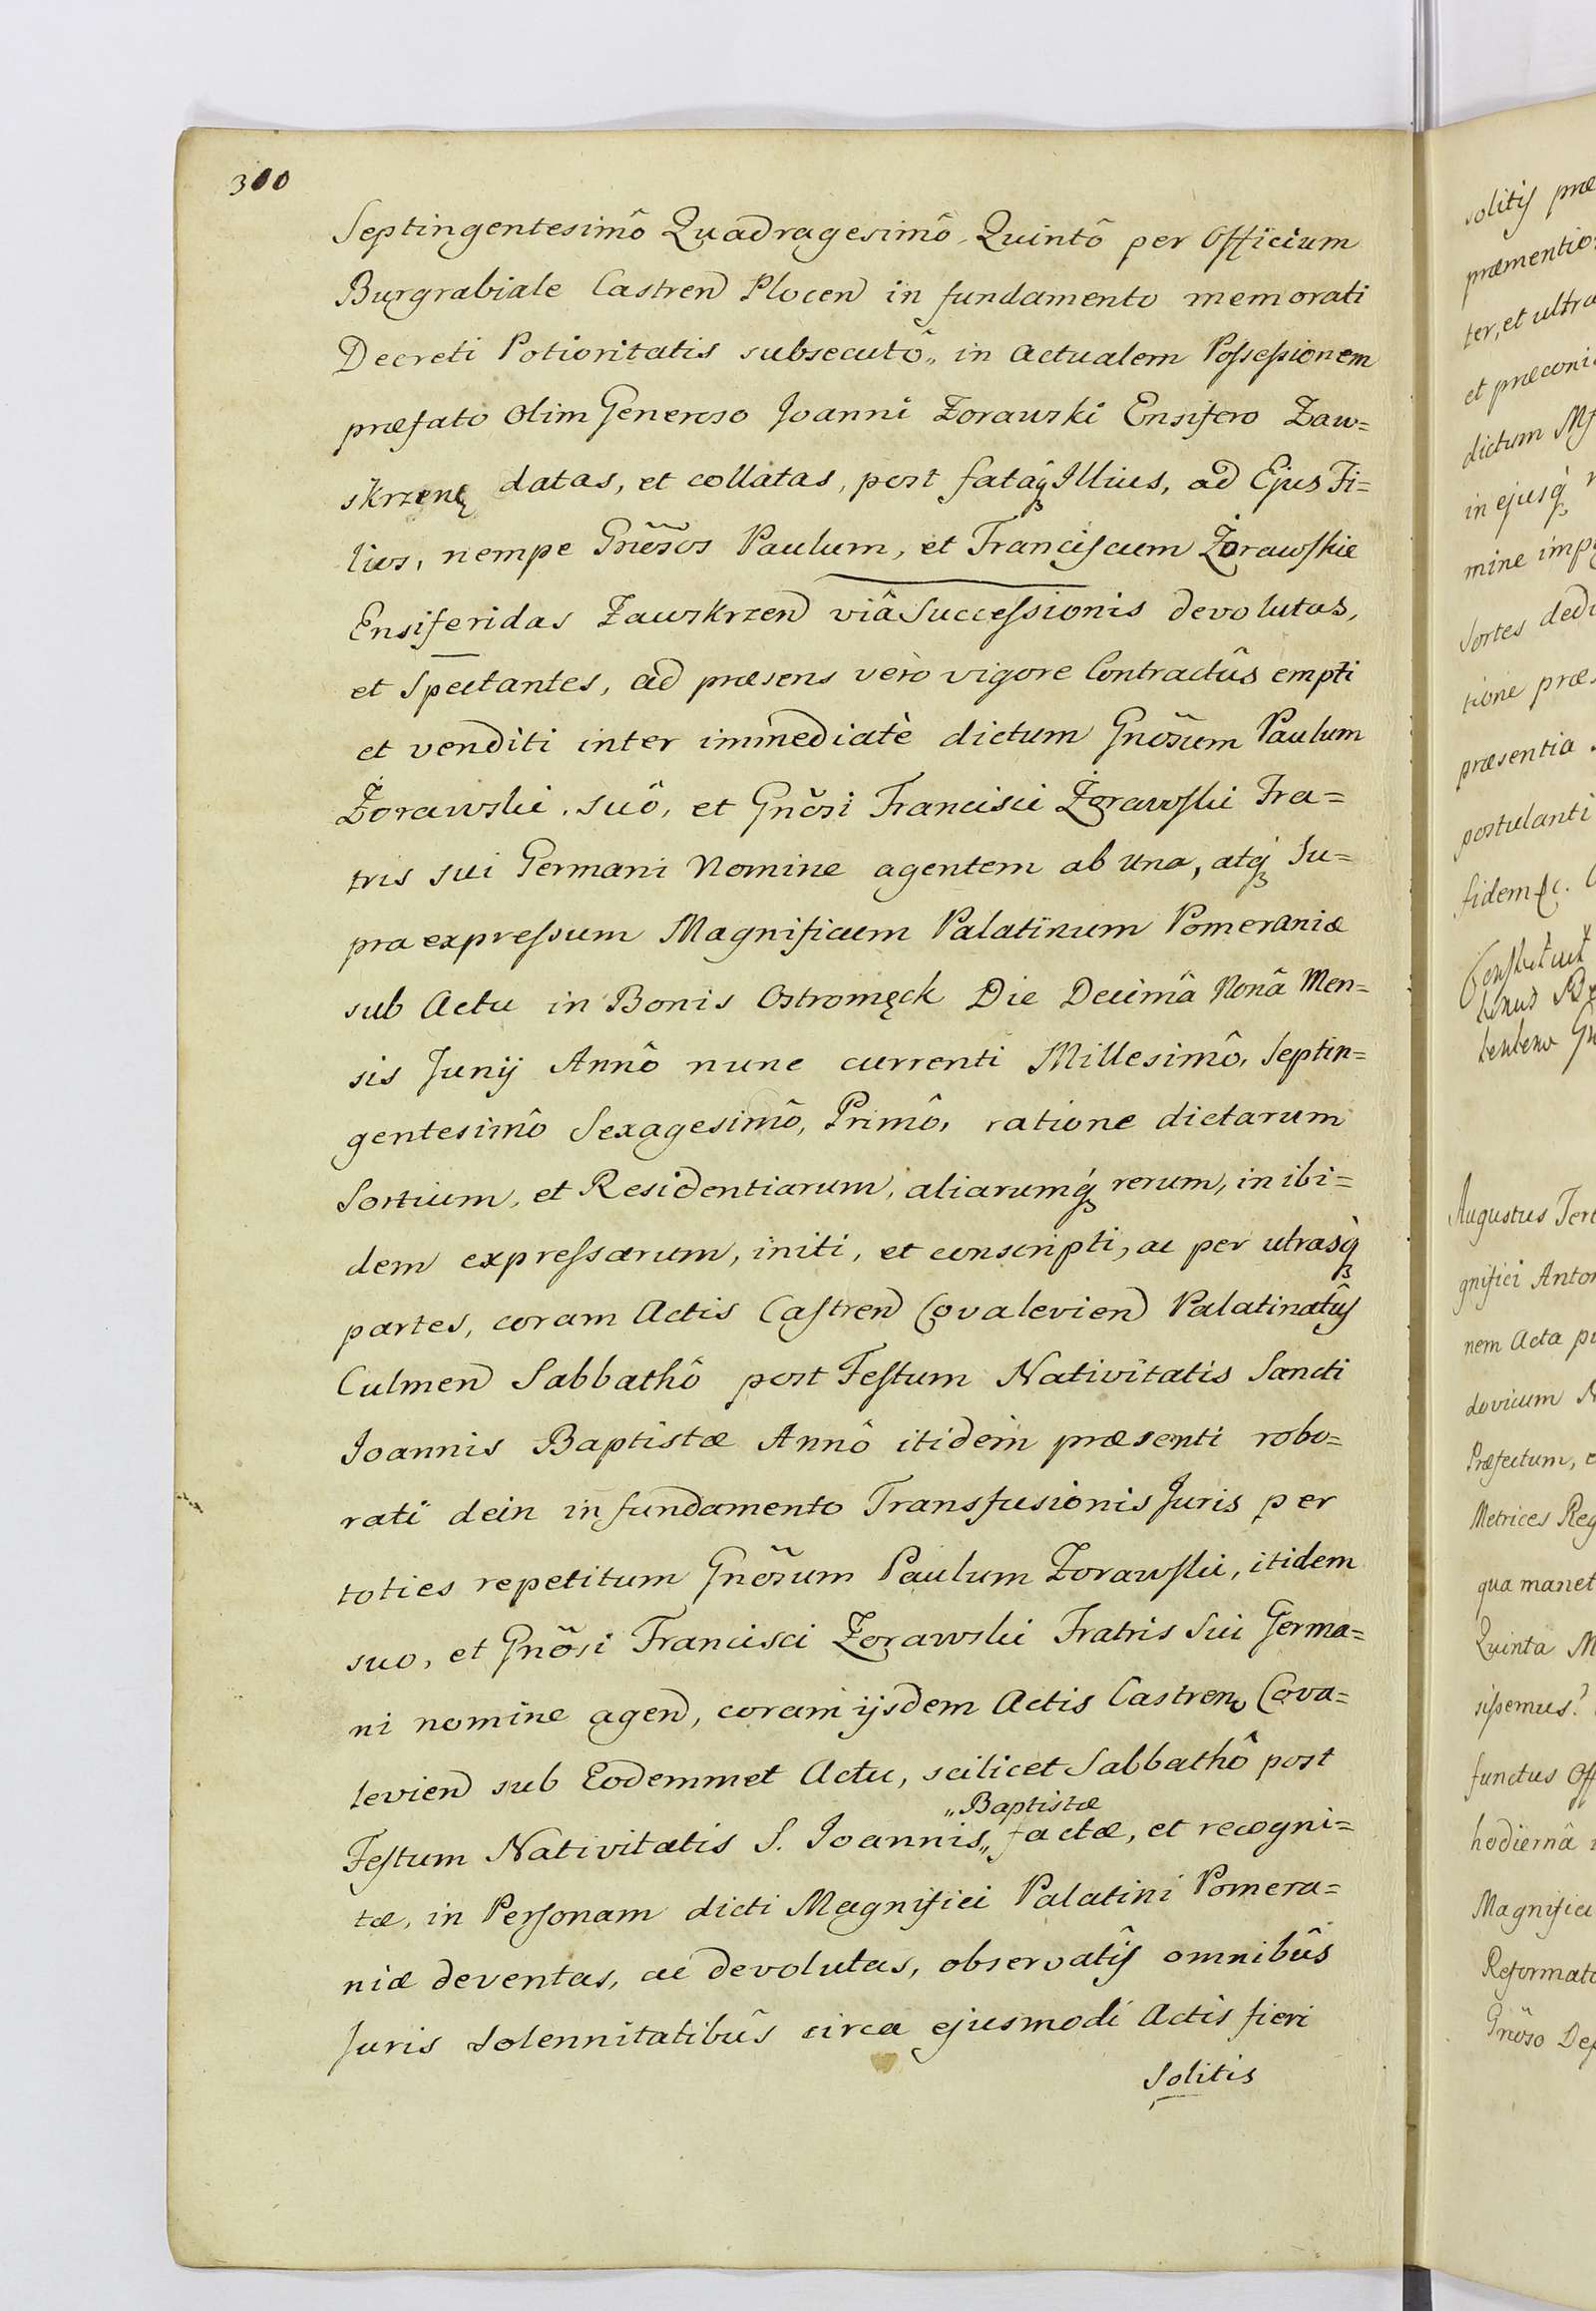 300
Septingentesimô Quadragesimô Quintô per Officium
Burgrabiale Castren Plocen in fundamento memorati
Decreti Potioritatis subsecutô, in actualem Possessionem
præfato olim Generoso Joanni Zorawski Ensifero Zaw=
skrzen datas, et collatas, post fataq Illius, ad Ejus Fi=
lios, nempe Gnẽsos Paulum, et Franciscum Żorawskie
Ensiferidas Zawskrzen viâ Successionis devolutas,
et Spectantes, ad præsens verò vigore Contractûs empti
et venditi inter immediatè dictum Gnõsum Paulum
Żorawski, suô, et Gnõsi Francisci Żorawski Fra=
tris sui Germani Nomine agentem ab una, atq Su=
pra expressum Magnificum Palatinum Pomeraniæ
sub Actu in Bonis Ostromęck Die Decimâ Nonâ Men=
sis Junij Annô nunc currenti Millesimô, Septin=
gentesimô Sexagesimô, Primô, ratione dictarum
Sortium, et Residentiarum, aliarumq rerum, in ibi=
dem expressarum, initi, et conscripti, ac per utrasq
partes, coram Actis Castren Covalevien Palatinatûs
Culmen Sabbathô post Festum Nativitatis Sancti
Joannis Baptistæ Annô itidem præsenti robo=
rati dein in fundamento Transfusionis Juris per
toties repetitum Gnõsum Paulum Zorawski, itidem
suo, et Gnõsi Francisci Zorawski Fratris Sui Germa=
ni nomine agen, coram ijsdem Actis Castren Cova=
levien sub Eodemmet Actu, scilicet Sabbathô post
„Baptistæ
Festum Nativitatis S. Joannis„ factæ, et recogni=
tæ, in Personam dicti Magnifici Palatini Pomera=
niæ deventas, ac devolutas, observatis omnibûs
Juris Solennitatibûs circa ejusmodi Actis fieri
Solitis
solitis præ
præmentio
ter, et ultra
et præconi
dictum
in ejusq
mine
Sortes
tione præs
præsentia
postulanti
fidem
Augustus Tert
gnifici Anton
nem Acta
dovicum
Præfectum,
Metrices Reg
qua manet
Quinta
sissemus?
functus Off
hodiernâ
Magnifici
Reformato
Gnõso Dep